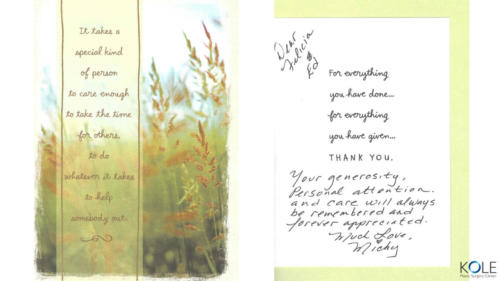 It takes a
special kind
of person
to care enough
to take the time
for others,
to do
whatever it takes
to help
somebody out.
Dear
Felicia
& Ed
For everything
you have done...
for everything
you have given...
THANK YOU.
Your generosity,
Personal attention
and care will always
be remembered and
forever appreciated.
Much Love,
Micky
KOLE
Plastic Surgery Center